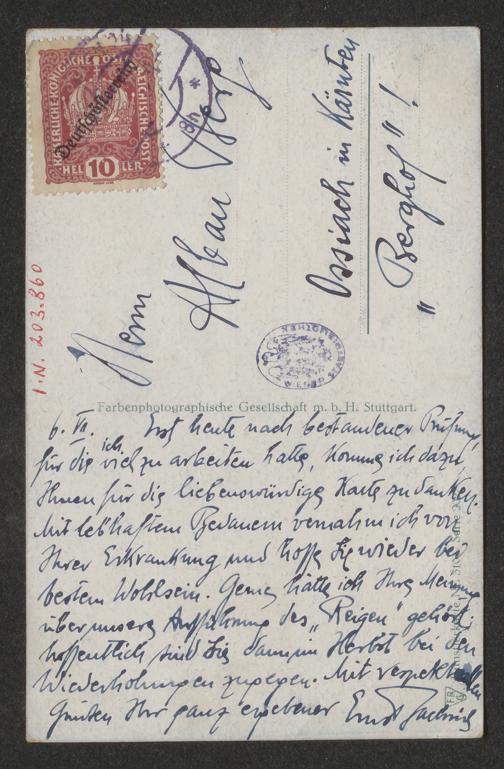 KAISERLICHE KÖNIGLICHE POST
REICHISCHE POST
Deutschösterreich
10
HELLER
8h *
Herrn
Alban Berg
Ossiach in Kärnten
„Berghof"!
I.N. 203.860
WIENER STADTBIBLIOTHEK
Farbenphotographische Gesellschaft m. b. H. Stuttgart.
6. VII. Erst heute nach bestandener Prüfung,
für die ich viel zu arbeiten hatte, komme ich dazu,
Ihnen für die liebenswürdige Karte zu danken.
Mit lebhaftem Bedauern vernahm ich von
Ihrer Erkrankung und hoffe Sie wieder bei
bestem Wohlsein. Gerne hätte ich Ihre Meinung
über unsere Aufführung des „Reigen" gehört,
hoffentlich sind Sie dann im Herbst bei den
Wiederholungen zugegen. Mit respektvollen
Grüßen Ihr ganz ergebener Ernst